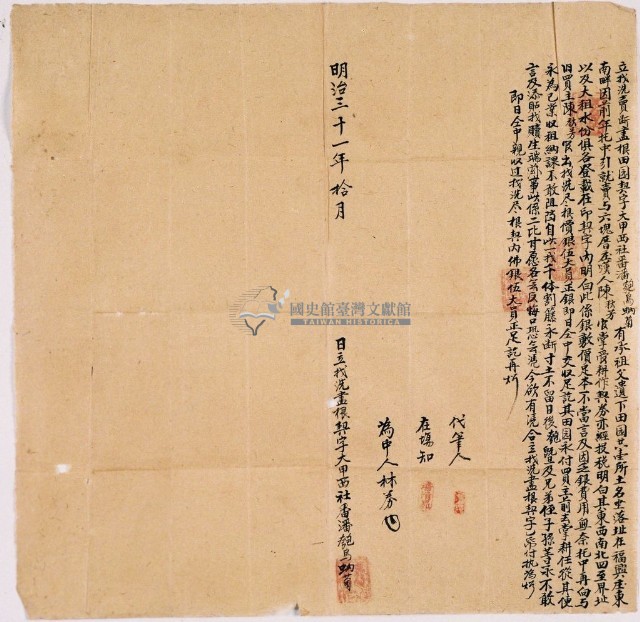 立找洗賣斷盡根田園契字大甲西社番潘 有承祖父遺下田園共壹所土名坐落址在福興庄東
南畔因前年托中引就賣與六塊厝庄漢人陳 官掌管耕作契券亦經投稅明白其東西南北四至界址
以及大租水份俱各登載在印契字內明白此係銀數價足本不當言及因乏銀費用無奈托中再向与
旧買主陳 官出找洗尽根價銀伍大員正銀即日仝中交收足訖其田園永付買主前去掌耕任從其便
永為己業收租納課不敢阻當自此一找千休割藤永断寸土不留日後 及兄弟侄子孫等永不敢
言及添貼找贖生端 事此係二比甘愿各無反悔口恐無憑今欲有憑合立找洗盡根契字一帋付执為炤
即日仝中親收過找洗尽根契內佛銀伍大員正足訖再炤
代筆人
在場知
為中人林
明治三十一年拾月 日立找洗盡根契字大甲西社番潘
國史館臺灣文獻館
TAIWAN HISTORICA